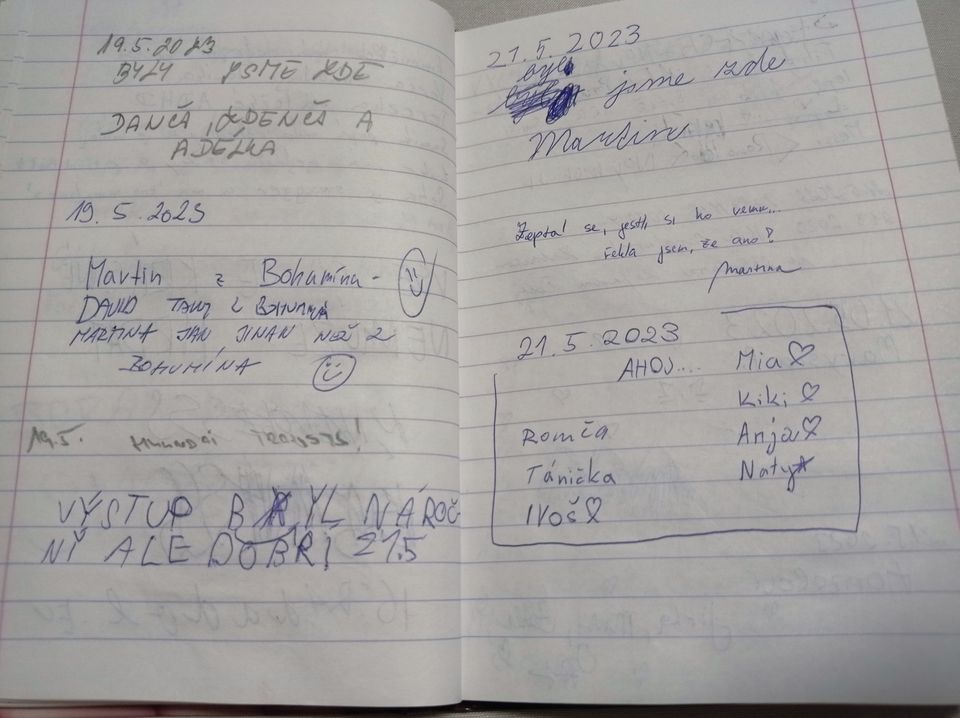 19.5.2023
BYLY JSME ZDE
DANČA, ZDENČA A
ADÉLKA
19.5.2023
Martin z Bohumína -
DAVID TAKY Z BOHUMÍNA
MARTINA JAN JINAN NEŽ Z
BOHUMÍNA
19.5. HYUNDAI !
VÝSTUP BYL NÁROČ-
NÍ ALE DOBRÍ 21.5
21.5.2023
byli
jsme zde
Martin
Zeptal se, jestli si ho vemu...
řekla jsem, že ano?
Martina
21.5.2023
AHOJ....
Mia
Kiki
Romča
Anja
Tánička
Naty
IVOŠ